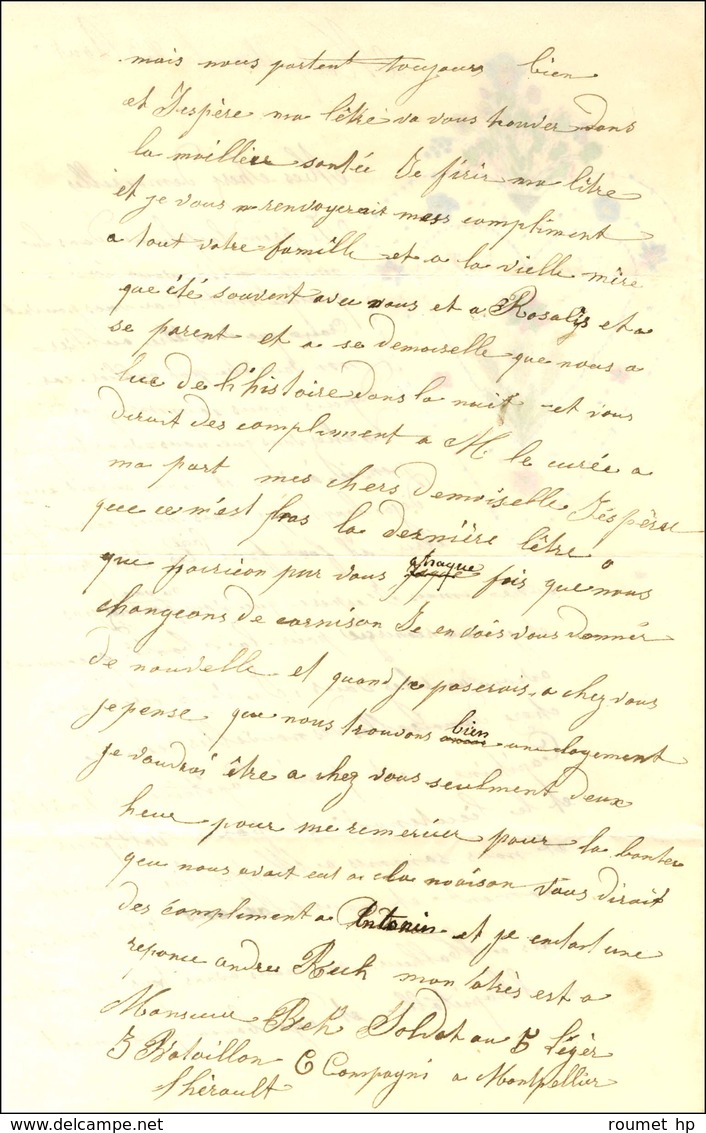 mais nous portent toujours bien
et J'espère ma lêtre va vous trouver dans
la meillere santée Je finir ma lêtre
et je vous renvoyerait mess compliment
a tout votre famille et a la vielle mère
que été souvent avec vous et a Rosalys et a
se parent et a se demoiselle que nous a
lue de l'histoire dans la nuit et vous
dirait des compliment a M. le curée a
ma part mes chers demoiselle J'éspère
que ce n'est pas la dernière lêtre
que pour vous chaque fois que nous
changeons de carnison Je en dois vous donner
de nouvelle et quand je paserais a chez vous
je pense que nous trouvons bien un logement
je voudrai être a chez vous seulment deux
heur pour me remercier pour la bonter
que nous avait eut a la maison Vous dirait
des compliment a Antonin et je entant une
reponce andre Beck mon atrès est a
Monsieur Bek Soldat au 5 Légèr
3 Bataillon 6 Compagni a Montpellier
l'hérault
roumet hp